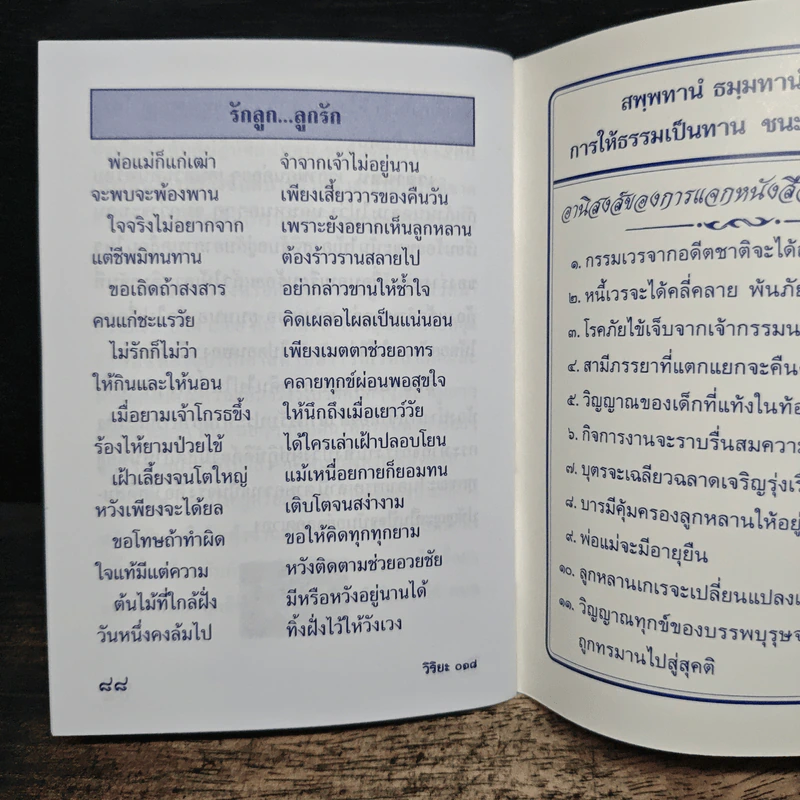 รักลูก...ลูกรัก
พ่อแม่ก็แก่เฒ่า จำจากเจ้าไม่อยู่นาน
จะพบจะพ้องพาน เพียงเสี้ยววารของคืนวัน
ใจจริงไม่อยากจาก เพราะยังอยากเห็นลูกหลาน
แต่ชีพมิทนทาน ต้องร้าวรานสลายไป
ขอเถิดถ้าสงสาร อย่ากล่าวขานให้ช้ำใจ
คนแก่ชะแรวัย คิดเผลอไผลเป็นแน่นอน
ไม่รักก็ไม่ว่า เพียงเมตตาช่วยอาทร
ให้กินและให้นอน คลายทุกข์ผ่อนพอสุขใจ
เมื่อยามเจ้าโกรธขึ้ง ให้นึกถึงเมื่อเยาว์วัย
ร้องไห้ยามป่วยไข้ ได้ใครเล่าเฝ้าปลอบโยน
เฝ้าเลี้ยงจนโตใหญ่ แม้เหนื่อยกายก็ยอมทน
หวังเพียงจะได้ยล เติบโตจนสง่างาม
ขอโทษถ้าทำผิด ขอให้คิดทุกทุกยาม
ใจแท้มีแต่ความ หวังติดตามช่วยอวยชัย
ต้นไม้ที่ใกล้ฝั่ง มีหรือหวังอยู่นานได้
วันหนึ่งคงล้มไป ทิ้งฝั่งไว้ให้วังเวง
๘๘
วิริยะ ๐๓๘
สพฺพทานํ ธมฺมทานํ
การให้ธรรมเป็นทาน ชนะ
อานิสงส์ของการแจกหนังสือ
๑. กรรมเวรจากอดีตชาติจะได้
๒. หนี้เวรจะได้คลี่คลาย พ้นภัย
๓. โรคภัยไข้เจ็บจากเจ้ากรรมน
๔. สามีภรรยาที่แตกแยกจะคืน
๕. วิญญาณของเด็กที่แท้งในท้อ
๖. กิจการงานจะราบรื่นสมความ
๗. บุตรจะเฉลียวฉลาดเจริญรุ่งเ
๘. บารมีคุ้มครองลูกหลานให้อยู่
๙. พ่อแม่จะมีอายุยืน
๑๐. ลูกหลานเกเรจะเปลี่ยนแปลง
๑๑. วิญญาณทุกข์ของบรรพบุรุษ
ถูกทรมานไปสู่สุคติ